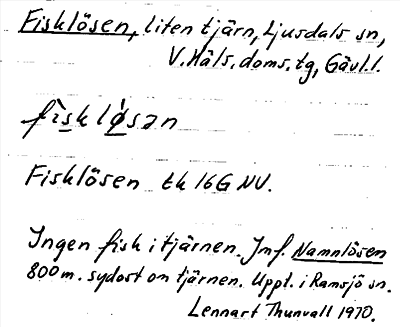 Fisklösen, liten tjärn, Ljusdals sn,
V. Häls. doms. tg, Gävl. l.
fìsklø̀sən
Fisklösen tk 16G NV.
Ingen fisk i tjärnen. Jmf. Namnlösen
800 m. sydost om tjärnen. Uppt. i Ramsjö sn.
Lennart Thunvall 1970.